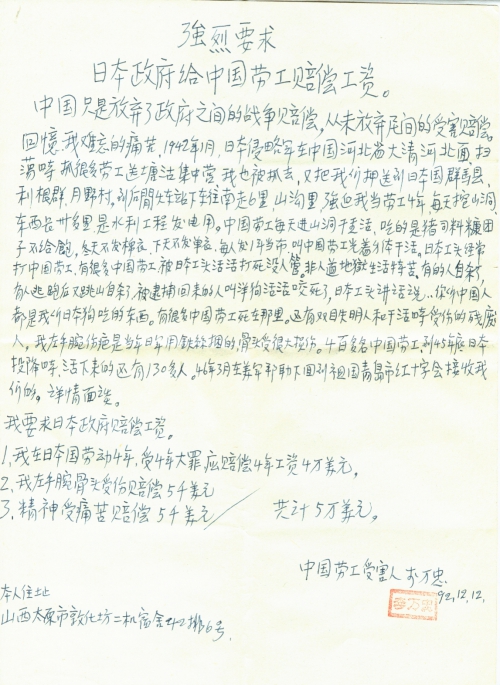 強烈要求
日本政府给中国劳工赔偿工资。
中国只是放弃了政府之间的战争赔偿,从未放弃民间的受害赔偿
回憶我难忘的痛苦,1942年1月,日本侵略军在中国河北省大清河北面,扫
荡時,抓很多劳工送塘沽集中营,我也被抓去,又把我们押送到日本国群馬县
利根群,月野村,到后閑火车站下车往南走6里,山沟里,強迫我当劳工4年,每天挖山洞,
东西長廿多里是水利工程发电用。中国劳工每天进山洞干重活,吃的是猪司料糠团
子不给飽,冬天不发棉衣,下天不发单衣,每人发1斗当布,叫中国劳工光着身体干活。日本工头经常
打中国劳工,有很多中国劳工被日本工头活活打死没人管。非人道地獄生活特苦,有的人自杀了,
有人逃跑后又跳山自杀了,被逮捕回来的人叫洋狗活活咬死了,日本工头讲话说:你们中国人
都是我们日本狗吃的东西。有很多中国劳工死在那里。还有双目失明人和干活時受伤的残废
人,我左手腕伤疤是当年日軍用铁丝捆的,骨头受很大损伤。4百多名中国劳工,到45年底日本
投降時,活下来的还有130多人。46年3月在美军帮助下回到祖国青島市红十字会接收我
们的。详情面谈。
我要求日本政府赔偿工资。
1,我在日本国劳动4年,受4年大罪,应赔偿4年工资4万美元,
2,我左手腕骨头受伤赔偿5千美元
3,精神受痛苦赔偿5千美元 共计5万美元,
中国劳工受害人李万忠
92,12,12,
本人住址
山西太原市敦化坊二机宿舍 排6号,